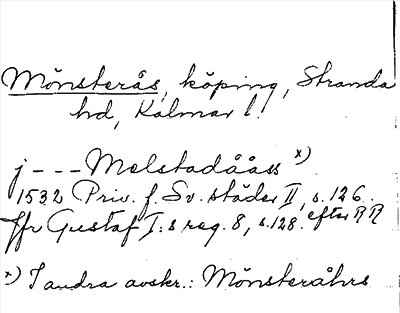 Mönsterås, köping, Stranda
hd, Kalmar l.
j --- Molstadååss x)
1532 Priv. f. Sv. städer II, s. 126.
Jfr Gustaf I:s reg. 8, s. 128. efter RR
x) I andra avskr.: Mönsteråhrs